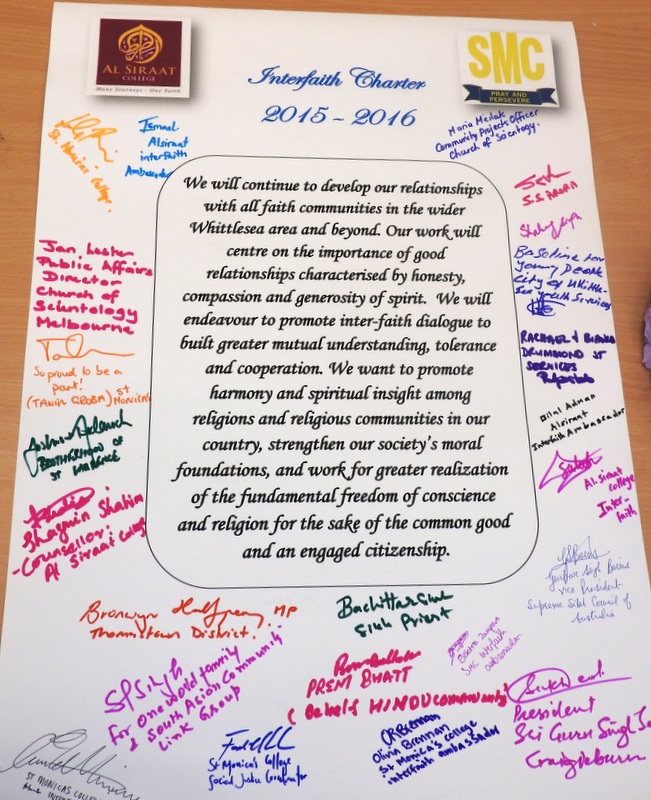 AL SIRAAT
COLLEGE
Many Journeys - One Faith
Interfaith Charter
2015 - 2016
SMC
PRAY AND
PERSEVERE
St. Monica's College.
Ismael
Alsiraat
interfaith
Ambassador
Maria
Community Projects Officer
Church of Scientology.
S.S. ARORA
We will continue to develop our relationships
with all faith communities in the wider
Whittlesea area and beyond. Our work will
centre on the importance of good
relationships characterised by honesty,
compassion and generosity of spirit. We will
endeavour to promote inter-faith dialogue to
built greater mutual understanding, tolerance
and cooperation. We want to promote
harmony and spiritual insight among
religions and religious communities in our
country, strengthen our society's moral
foundations, and work for greater realization
of the fundamental freedom of conscience
and religion for the sake of the common good
and an engaged citizenship.
Jan Lester
Public Affairs
Director
Church of
Scientology
Melbourne
So proud to be a
part!
St
Monicas
BROTHERHOOD OF
ST LAURENCE
Shahim
-Counsellor:
Al Siraat College
City of Whittle-
sea Youth Services
RACHAEL &
DRUMMOND ST
SERVICES
Bilal Adnan
Alsiraat
Interfaith Ambassador
Al. Siraat
College
Inter-
faith
Singh
Vice President
Supreme Sikh Council of
Australia
Bronwyn Halfpenny MP
Thomastown District.
Sikh Priest
SP Singh
For One world family
& South Asian Community
Link Group
PREM BHATT
(Behalf HINDU community)
SMC Interfaith
ambassador
Olivia Brennan
St Monica's College
interfaith ambassador
President
Sri Guru Singh
Craigieburn
St Monica's College
Social Justice Coordinator
ST MONICAS COLLEGE